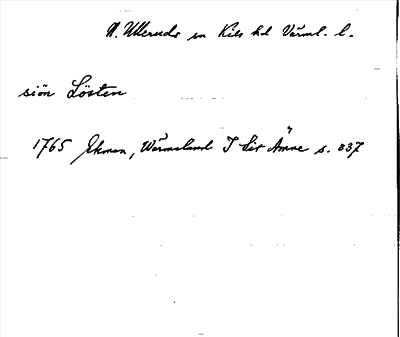 N. Ulleruds sn Kils hd Värml. l.
sjön Lösten
1765 Ekman, Wärmeland I sit Ämne s. 337